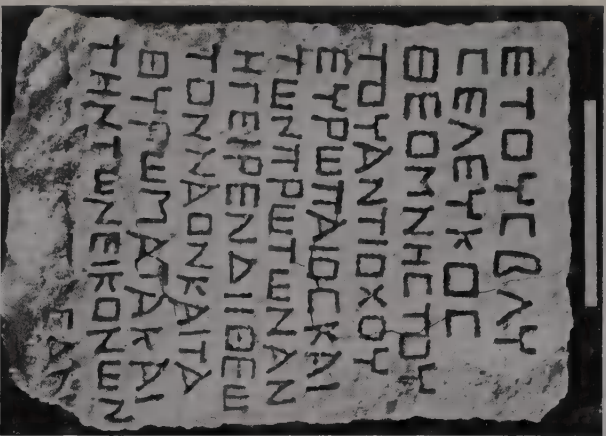 ΕΤΟΥϹΒΛΥ
ϹΕΛΕΥΚΟϹ
ΘΕΟΜΝΗϹΤΟΥ
ΤΟΥΑΝΤΙΟΧΟΥ
ΕΥΡΩΠΑΙΟϹΚΑΙ
ΤΩΝΠΡΩΤΩΝΑΝ
ΗΓΕΙΡΕΝΔΙΙΘΕΩ
ΤΟΝΝΑΟΝΚΑΙΤΑ
ΘΥΡΩΜΑΤΑΚΑΙ
ΤΗΝΤΩΝΕΙΚΟΝΩΝ